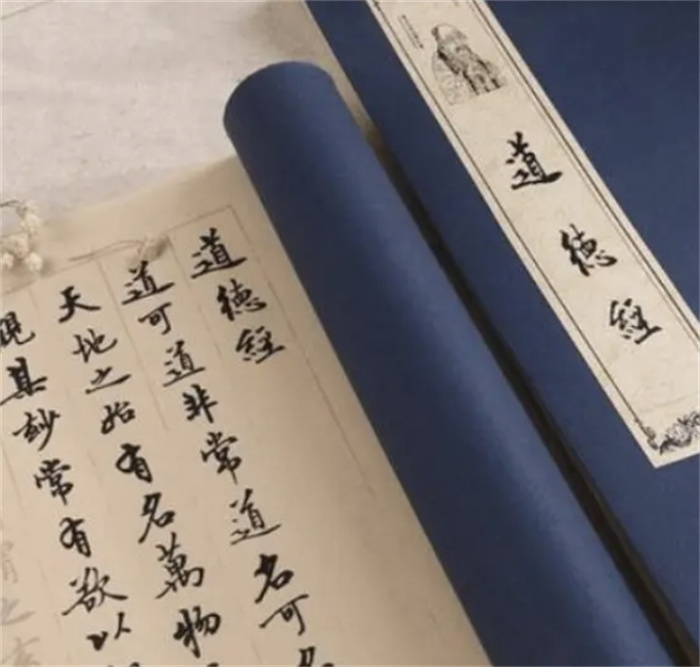 道德經
道德經
道可道非常道名可名
天地之始有名萬物
觀其妙常有欲以